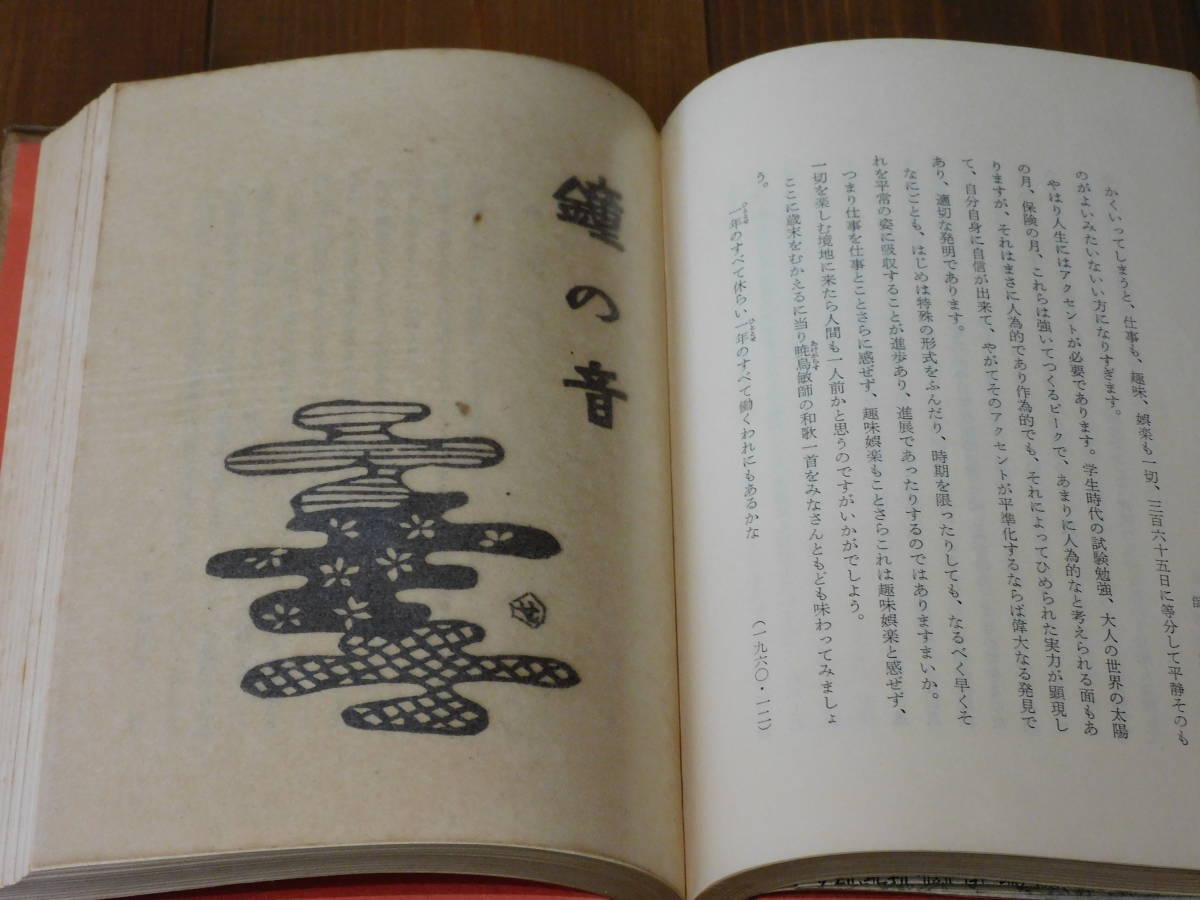 かくいってしまうと、仕事も、趣味、娯楽も一切、三百六十五日に等分して平静そのも
のがよいみたいないい方になりすぎます。
やはり人生にはアクセントが必要であります。学生時代の試験勉強、大人の世界の太陽
の月、保険の月、これらは強いてつくるピークで、あまりに人為的なと考えられる面もあ
りますが、それはまさに人為的であり作為的でも、それによってひめられた実力が顕現し
て、自分自身に自信が出来て、やがてそのアクセントが平準化するならば偉大なる発見で
あり、適切な発明であります。
なにごとも、はじめは特殊の形式をふんだり、時期を限ったりしても、なるべく早くそ
れを平常の姿に吸収することが進歩あり、進展であったりするのではありますまいか。
つまり仕事を仕事とことさらに感ぜず、趣味娯楽もことさらこれは趣味娯楽と感ぜず、
一切を楽しむ境地に来たら人間も一人前かと思うのですがいかがでしよう。
ここに歳末をむかえるに当り暁烏敏師の和歌一首をみなさんともども味わってみましょ
う。
一年のすべて休らい一年のすべて働くわれにもあるかな
(一九六〇・一二)
鐘の音